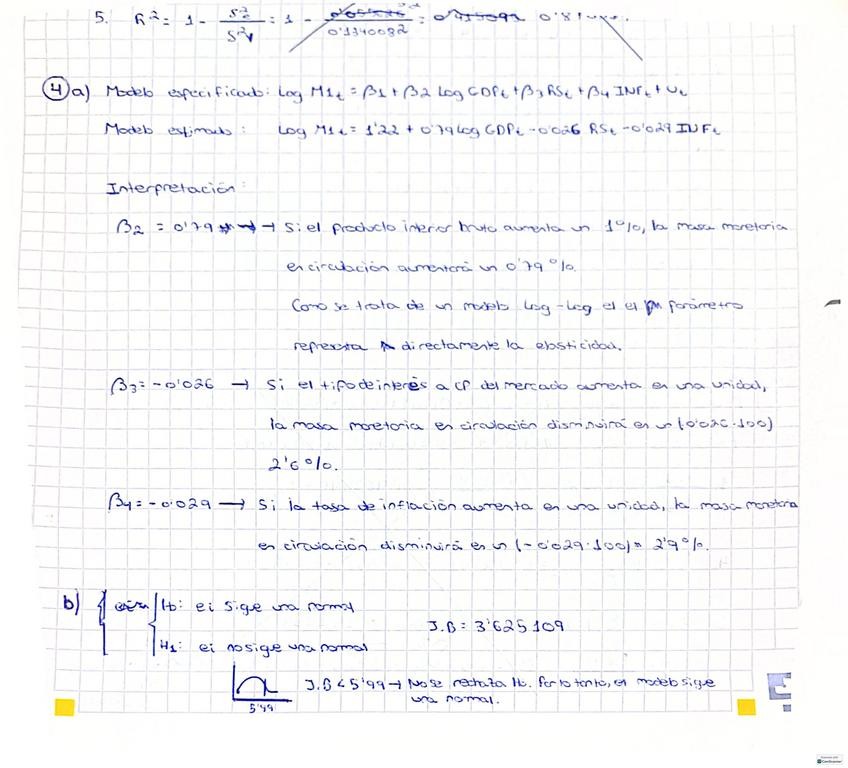 5. R² = 1 - S²e / S²Y = 1 - / 0'1340082 =
④ a) Modelo especificado: Log M1t = β1 + β2 Log GDPt + β3 RSt + β4 INFt + Ut
Modelo estimado: Log M1t = 1'22 + 0'79 Log GDPt - 0'026 RSt - 0'029 INFt
Interpretación:
β2 = 0'79 → Si el producto interior bruto aumenta un 1%, la masa monetaria
en circulación aumentará un 0'79%.
Como se trata de un modelo Log-Log el el parámetro
representa directamente la elasticidad.
β3 = -0'026 → Si el tipo de interés a CP del mercado aumenta en una unidad,
la masa monetaria en circulación disminuirá en un (0'026·100)
2'6%.
β4 = -0'029 → Si la tasa de inflación aumenta en una unidad, la masa monetaria
en circulación disminuirá en un (-0'029·100) = 2'9%.
b) H0: ei sigue una normal
J.B = 3'625109
H1: ei no sigue una normal
J.B < 5'99 → No se rechaza H0. Por lo tanto, el modelo sigue
una normal.
5'99
CamScanner